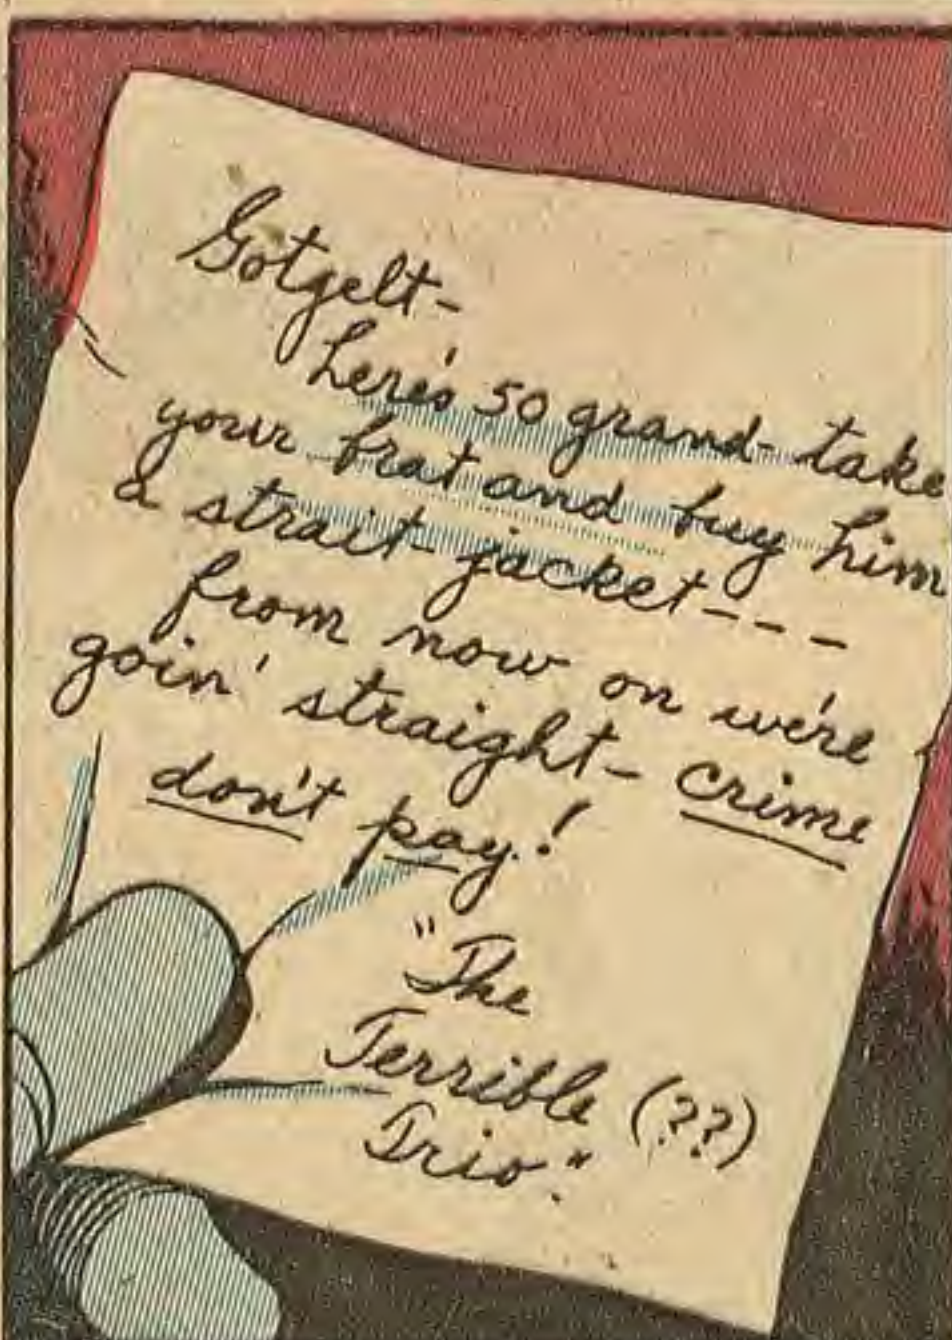 Gotgelt-
here's 50 grand- take
your brat and buy him
a strait-jacket---
from now on we're
goin' straight- crime
don't pay!
"The
Terrible (??)
Trio."